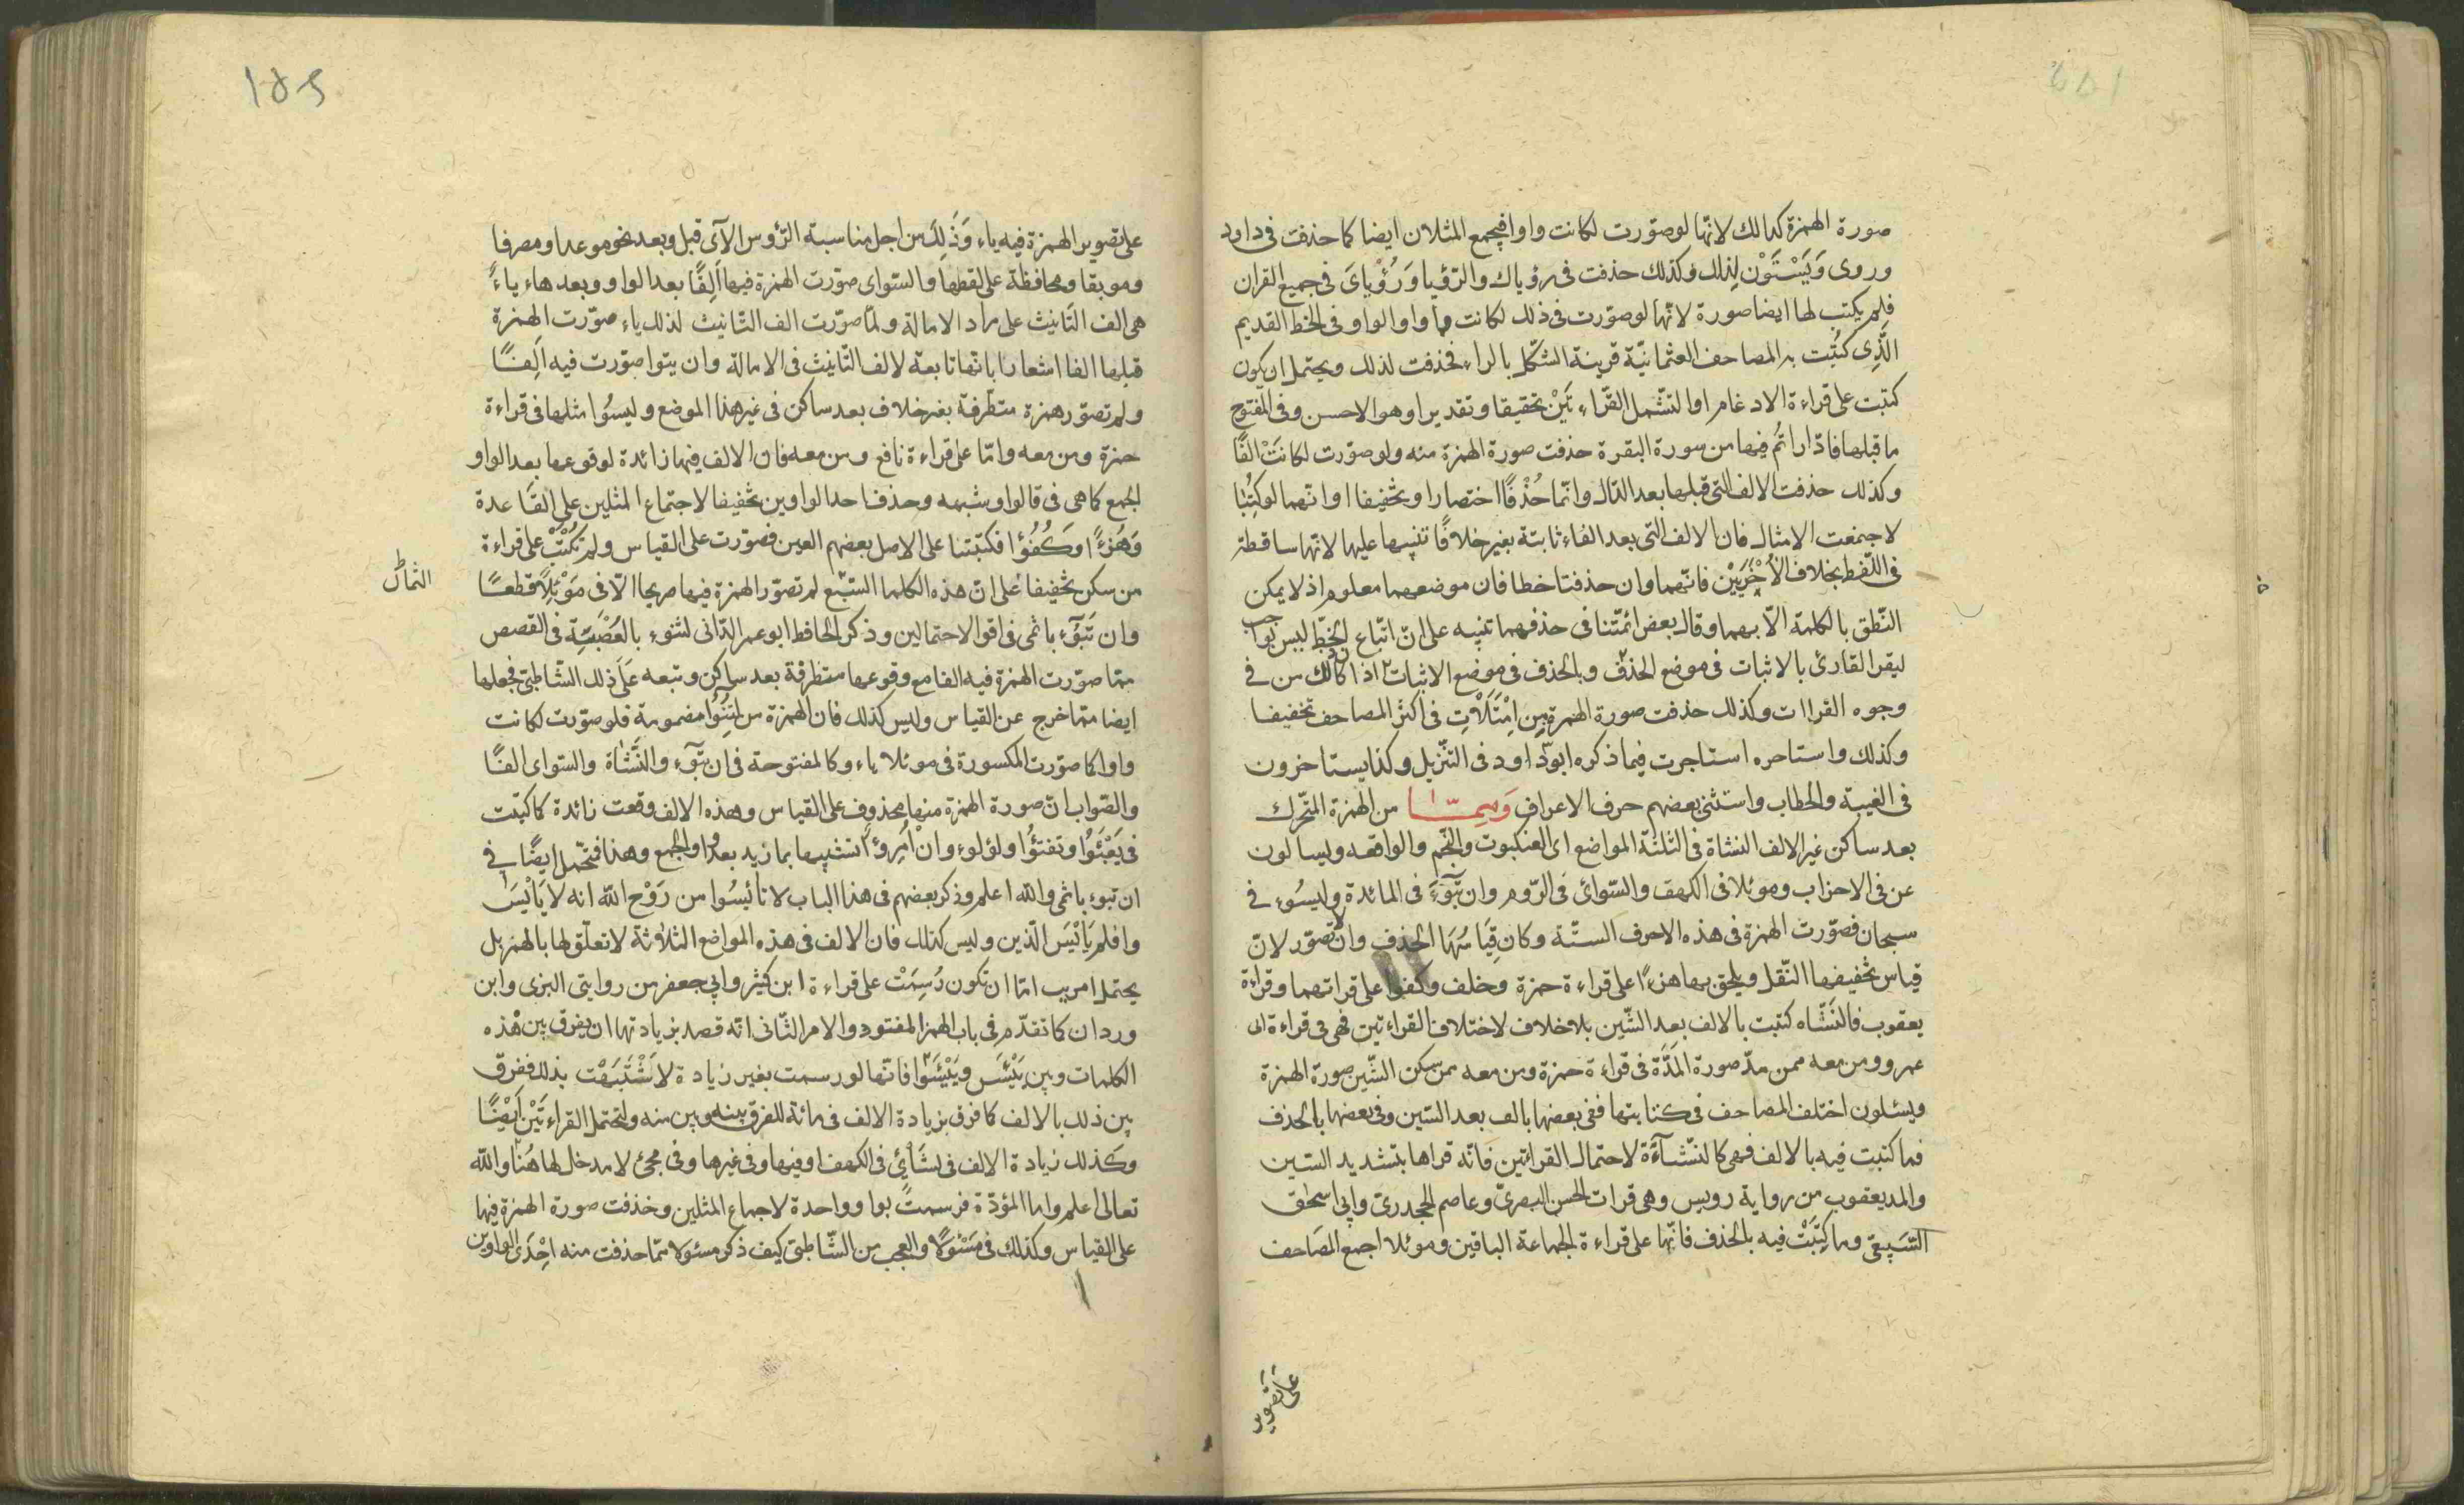 صورة الهمزة كذلك لانّها لوصوّرت لكانت واوا فيجمع المثلان ايضا كما حذفت فى داود
وروى وَيَسْتَوْن لذلك وكذلك حذفت فى رؤياك والرّؤيا وَرُؤْيايَ فى جميع القران
فلم يكتب لها ايضا صورة لانّها لوصوّرت فى ذلك لكانت واوا والواو فى الخط القديم
الّذى كتبت به المصاحف العثمانيّة قريبة الشكل بالراء فحذفت لذلك ويحتمل ان يكون
كتبت على قراءة الادغام او لتشمل القرّاءتَيْن تحقيقا وتقديرا وهو الاحسن وفى المفتوح
ما قبلها فادّاراتُم فيها من سورة البقرة حذفت صورة الهمزة منه ولو صوّرت لكانَتْ الفًا
وكذلك حذفت الالف التى قبلها بعد الدّال وانّما حُذْفًا اختصارا وتخفيفا او انّهما لو كتِبُا
لاجتمعت الامثال فان الالف التى بعد الفاء ثابتة بغير خلافًا تنبيها عليها لانّها ساقطة
فى اللّفظ بخلاف الاُخْرَيَيْن فانّهما وان حذفتا خطا فان موضعهما معلوم اذ لا يمكن
النّطق بالكلمة الّا بهما وقال بعض ائمّتنا فى حذفهما تنبيه على انّ اتّباع الخطّ ليس بواجب
ليقرا القارئ بالاثبات فى موضع الحذف وبالحذف فى موضع الاثبات اذا كان ذلك من فى
وجوه القراات وكذلك حذفت صورة الهمزة من اِمْتَلَأْتِ فى اكثر المصاحف تخفيفا
وكذلك واستاجره استاجرت فيما ذكره ابو دّاود فى التنزيل وكذا يستاخرون
فى الغيبة والخطاب واستثنى بعضهم حرف الاعراف من الهمزة المتحرّك
بعد ساكن غير الالف النشاة فى الثلثة المواضع اى العنكبوت والنّجم والواقعه وليسالون
عن فى الاحزاب وموئلا فى الكهف والسّوائ فى الرّوم وان تَبُوٓءَ فى المائدة وليسُوءِ فى
سبحان فصوّرت الهمزة فى هذه الاحرف الستّة وكان قِيَاسُهَا الحذف وان لا تصوّر لانّ
قياس تخفيفها النّقل ويلحق بها هزءًا على قراءة حمزة وخلف وكفوا على قراتهما وقراءة
يعقوب فالنشاه كتبت بالالف بعد الشّين بلا خلاف لاختلاف القراءتين فهى فى قراءة ابى
عمرو ومن معه ممن مدّ صورة المَدَّة فى قراءة حمزة ومن معه ممن سكن الشّين صورة الهمزة
ويسئلون اختلف المصاحف فى كتابتها ففى بعضها بالف بعد السّين وفى بعضها بالحذف
فما كتبت فيه بالالف فهى كالنّشأءَة لاحتمال القرائتين فَانّه قراها بتشديد السّين
والمد يعقوب من رواية رويس وهى قرات الحسن البصرىّ وعاصم الجحدرىّ وابى اسحٰق
السّبيعىّ وما كتِبَتْ فيه بالحذف فانّها على قراءة الجماعة الباقين وموئلا اجمع المصَاحف
على تصوير
على تصوير الهمزة فيه ياء وَذَلِكَ من اجل مناسبة الرّؤس الآى قبل وبعد نحو موعدا ومصرفا
وموبقا ومحافظة على لفظها والسّواى صوّرت الهمزة فيها اَلِفًا بعد الواو وبعدهاء ياءً
هى الف التّانيث على مراد الامالة ولمّا صوّرت الف التّانيث لذلك ياء صوّرت الهمزة
قبلها الفا اشعارا بانّها تابعة لالف التّانيث فى الامالة وان يتوا صوّرت فيه اَلِفًا
ولم تصوّر همزة متطرّفة بغير خلاف بعد ساكن فى غير هذا الموضع وليسُوا مثلها فى قراءة
حمزة ومن معه وامّا على قراءة نافع ومن معه فان الالف فيها زائدة لوقوعها بعد الواو
الجمع كما هى فى قالوا وشبهه وحذف احد الواوين تخفيفا لاجتماع المثلين على القاعدة
وَهُزءًا وَكُفُؤًا فكتبتا على الاصل بعضهم العين فصوّرت على القياس ولم تكْتَبْ على قراءة
من سكن تخفيفا على انّ هذه الكلما السّبّع لم تصوّر الهمزة فيها صريحا الّا فى مَوْئِلًا قطعًا
الثمان
وان تَبُوٓءَ باثمى فى اقوا الاحتمالين وذكر الحافظ ابو عمر الدّانى لتنوء بالعُصْبَةِ فى القصص
ممّا صوّرت الهمزة فيه الفا مع وقوعها متطرفة بعد ساكن وتبعه عَلَى ذلك الشّاطبى فجعلها
ايضا ممّا خرج عن القياس وليس كذلك فان الهمزة من لتنُوا مضمومة فلو صوّرت لكانت
واوا كما صوّرت المكسورة فى موئلا ياء وكالمفتوحة فى ان تبوٓء والنَّشاة والسّواى الفًا
والصّواب انّ صورة الهمزة منها محذوف على القياس وهذه الالف وقعت زائدة كما كتبت
فى يَعْبَئُوا وتفتؤُا ولؤلوء وانْ امْرِوءٌ اتشبيها بما زيد بعد واو الجمع وهذا محتمل ايضًا فى
ان تبوء باثمى والله اعلم وذكر بعضهم فى هذا الباب لا تائيسُوا من رَوْح الله انه لا يَايْيَسَ
وافلم يَايْيَسَ الّذين وليس كذلك فان الالف فى هذه المواضع الثلاثة لا تعلّق لها بالهمز بل
يحتمل امريں امّا ان تكون رُسِمَتْ على قراءة ابن كثير وابى جعفر من روايتى البزى وابن
وردان كما تقدّم فى باب الهمز المفتود والامر الثّانى انّه قصد بزيادتها ان يفرق بين هٰذه
الكلمات وبين يَئِسَ ويَئِسُوا فانّها لو رسمت بغير زيادة لاشْتَبَهْت بذلك ففرّق
بين ذلك بالالف كما فرق بزيادة الالف فى مائة للفرق بينه وبين منه ولتحتمل القراءتَيْن اَيْضًا
وكذلك زيادة الالف فى لِشَايْئٍ فى الكهف او فيها وفى غيرها وفى مجئ لا مدخل لها هُنَا والله
تعالى اعلم واما المؤدّة فرسمت بواو واحدة لاجماع المثلين وحذفت صورة الهمزة فيها
على القياس وكذلك فى مَسْئولًا والعجب من الشّاطبى كيف ذكر مسئولا ممّا حذفت منه اِحْدَى الواوين